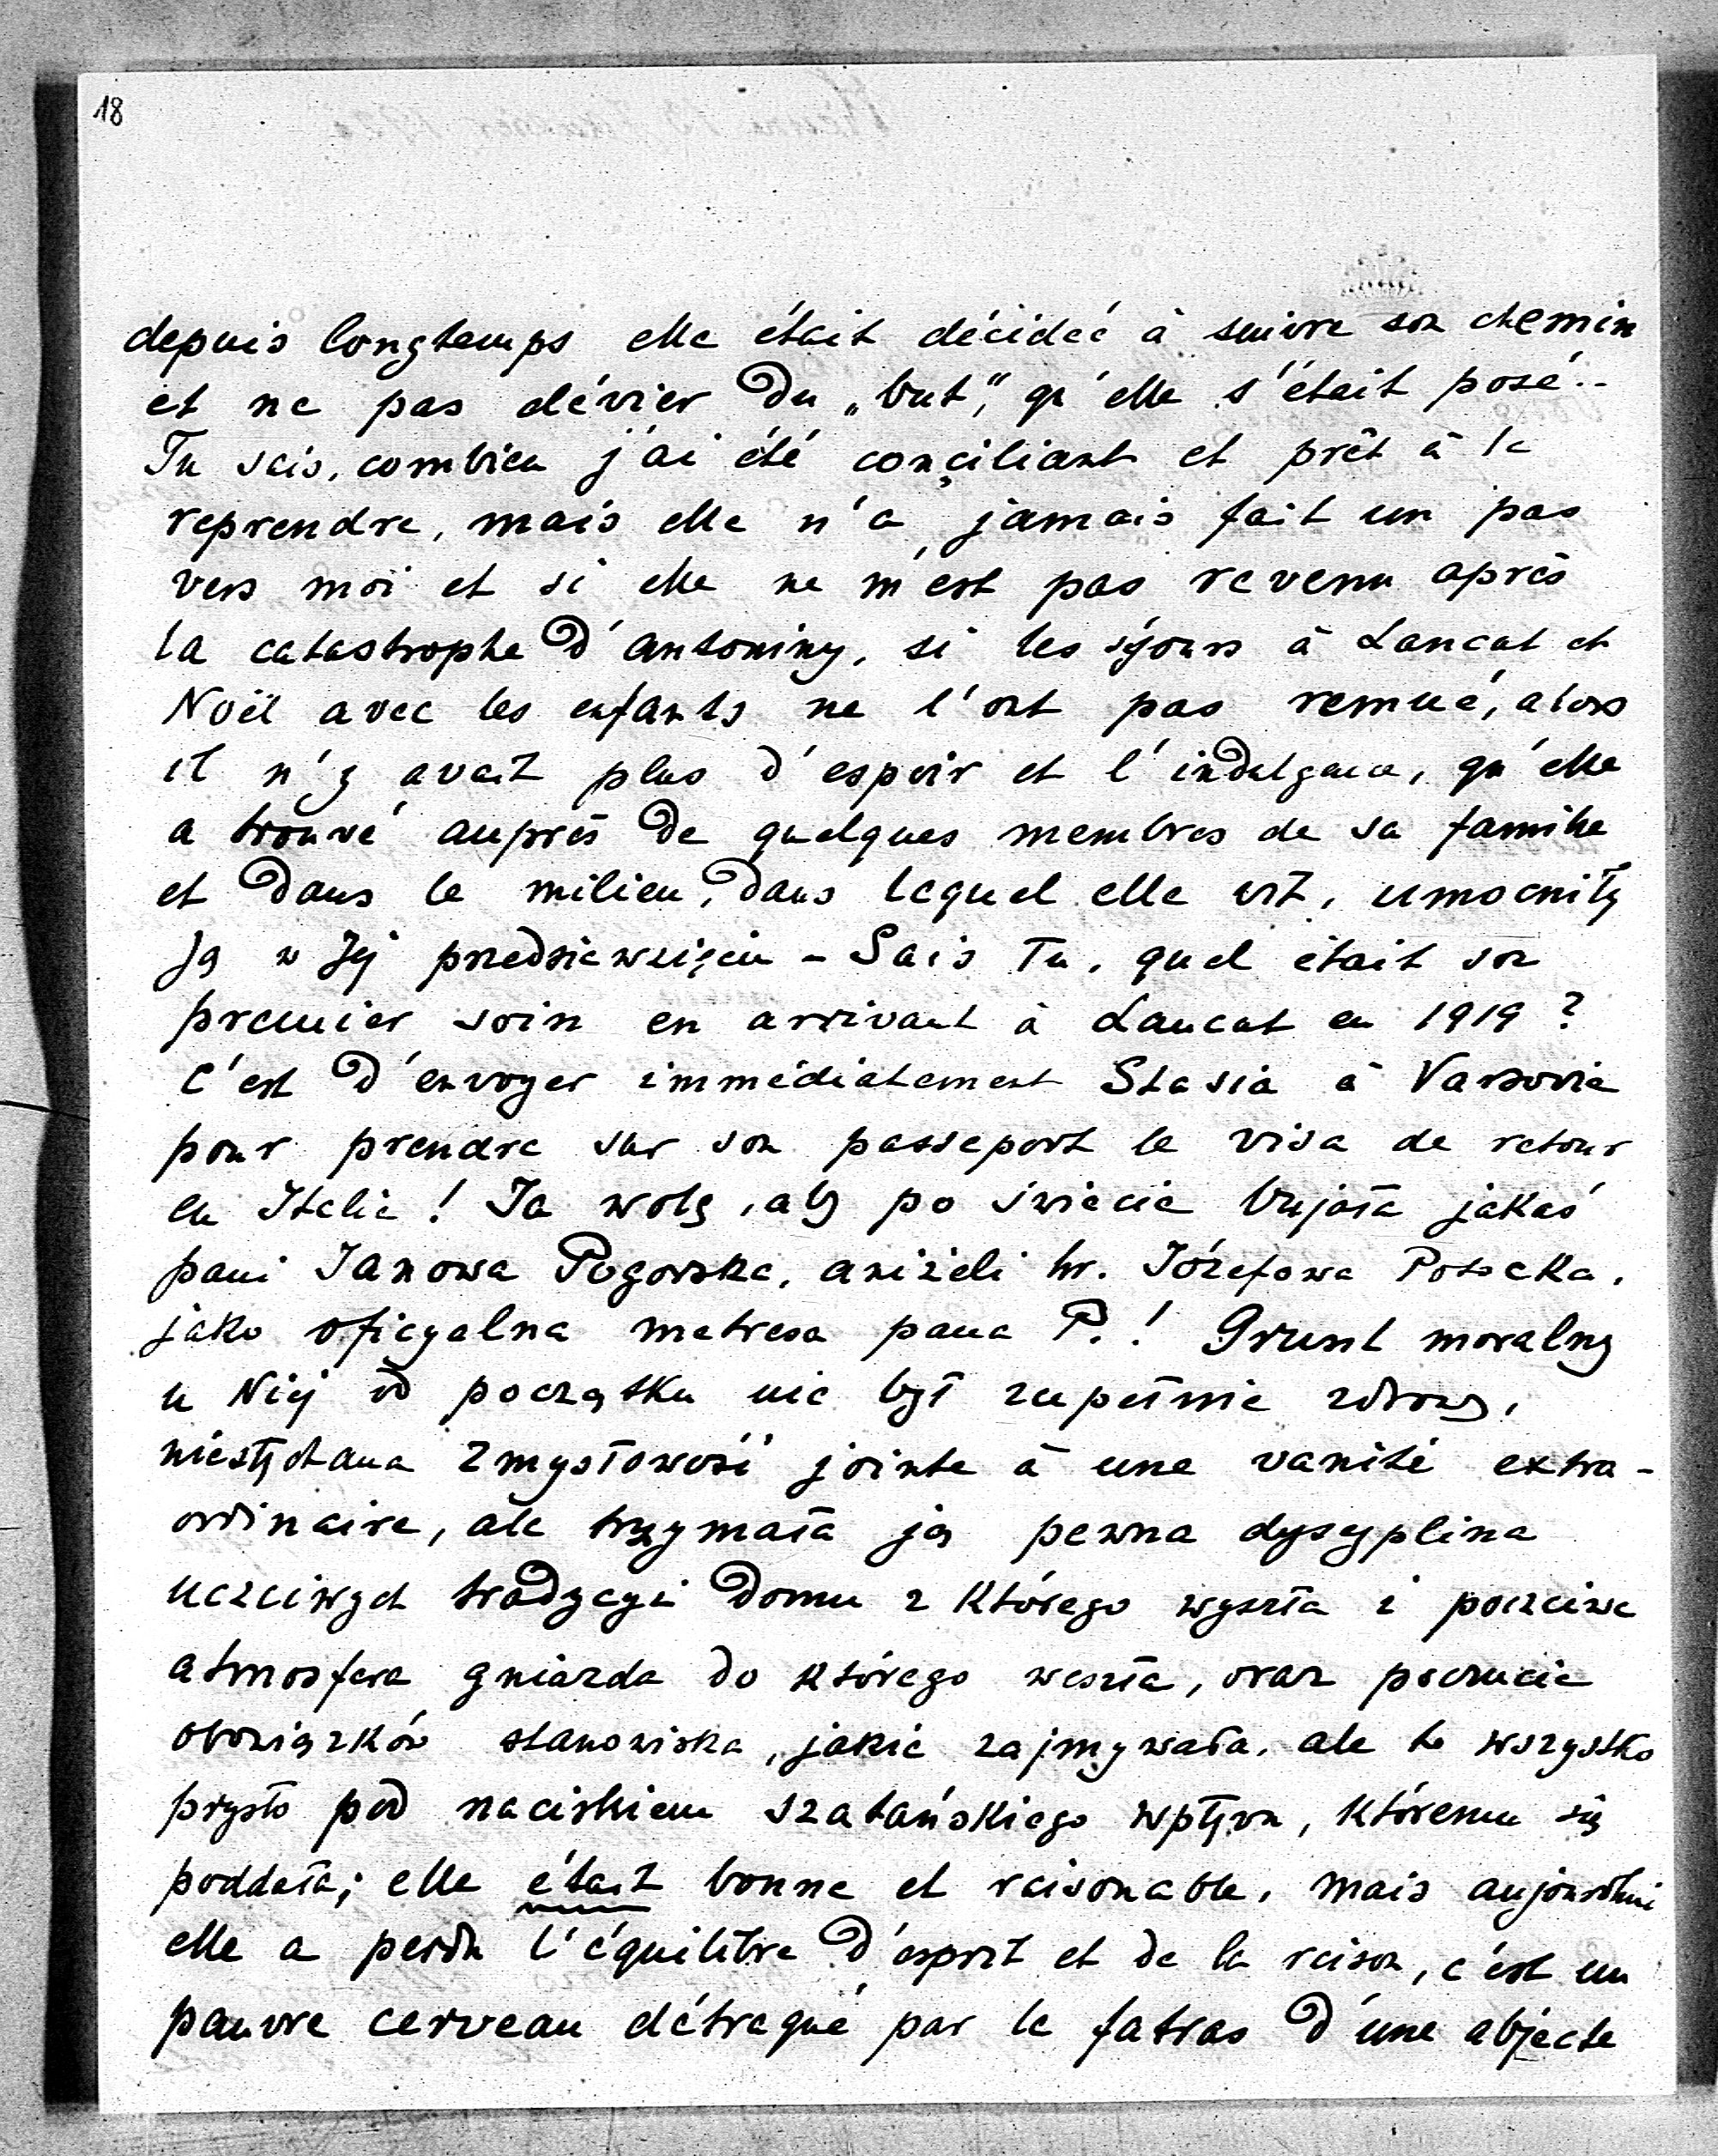 18
depuis longtemps elle était décideé à suivre son chemin
et ne pas dévier du „but", qu'elle s'était posé..
Tu sais, combien j'ai été conciliant et prêt à la
reprendre, mais elle n'a jamais fait un pas
vers moi et si elle ne m'est pas revenu après
la catastrophe d'Antoniny, si les séjours à Lancut et
Noël avec les enfants ne l'ont pas remué, alors
il n'y avait plus d'espoir et l'indulgence, qu'elle
a trouvé auprès de quelques membres de sa famille
et dans le milieu, dans lequel elle vit, umocniły
Ją w Jej przedsięwzięciu – Sais Tu, quel était son
premier soin en arrivant à Lancut en 1919 ?
C'est d'envoyer immédiatement Stasia à Varsovie
pour prendre sur son passeport le visa de retour
en Italie ! Ja wolę, aby po świecie bujała jakaś
pani Janowa Pogorska, aniżeli hr. Józefowa Potocka,
jako oficyalna metresa pana P. ! Grunt moralny
u Niej od początku nie był zupełnie zdrowy,
niesłychana zmysłowość jointe à une vanité extra-
ordinaire, ale trzymała ją pewna dyscyplina
uczciwych tradycyi domu z którego wyszła i poczciwa
atmosfera gniazda do którego weszła, oraz poczucie
obowiązków stanowiska, jakie zajmywała, ale to wszystko
prysło pod naciskiem szatańskiego wpływu, któremu się
poddała; elle était bonne et raisonable, mais aujourdhui
elle a perdu l'équilibre d'esprit et de la raison, c'est un
pauvre cerveau détraqué par le fatras d'une abjecte